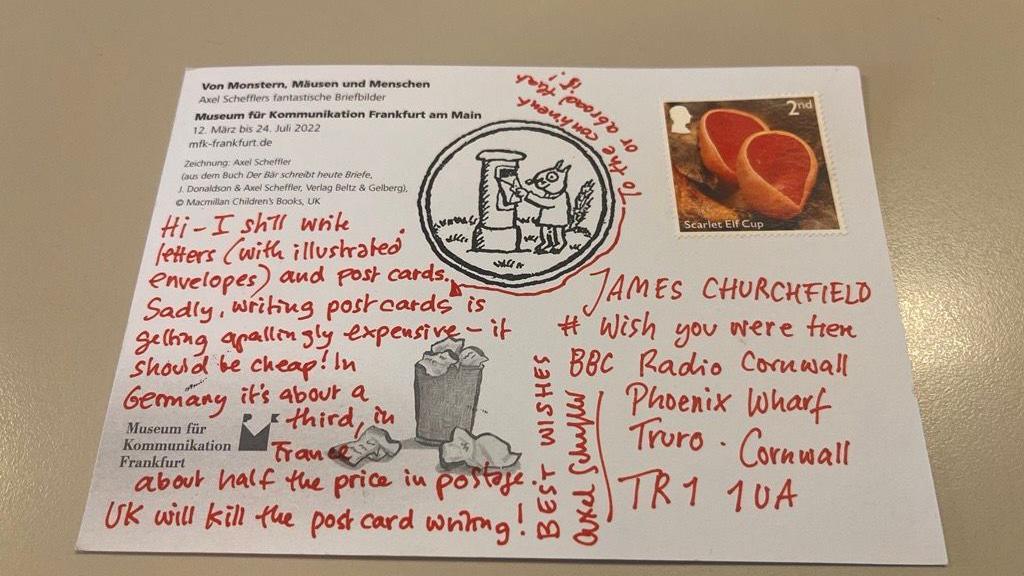 Von Monstern, Mäusen und Menschen
Axel Schefflers fantastische Briefbilder
Museum für Kommunikation Frankfurt am Main
12. März bis 24. Juli 2022
mfk-frankfurt.de
Zeichnung: Axel Scheffler
(aus dem Buch Der Bär schreibt heute Briefe,
J. Donaldson & Axel Scheffler, Verlag Beltz & Gelberg),
© Macmillan Children's Books, UK
Hi - I still write
letters (with illustrated
envelopes) and post cards.
Sadly, writing post cards is
getting apallingly expensive - it
should be cheap! In
Germany it's about a
third, in
France
about half the price in postage.
UK will kill the post card writing!
To the continent
or abroad that
is!
Museum für
Kommunikation
Frankfurt
BEST WISHES
Axel Scheffler
2nd
Scarlet Elf Cup
JAMES CHURCHFIELD
# Wish you were here
BBC Radio Cornwall
Phoenix Wharf
Truro · Cornwall
TR1 1UA